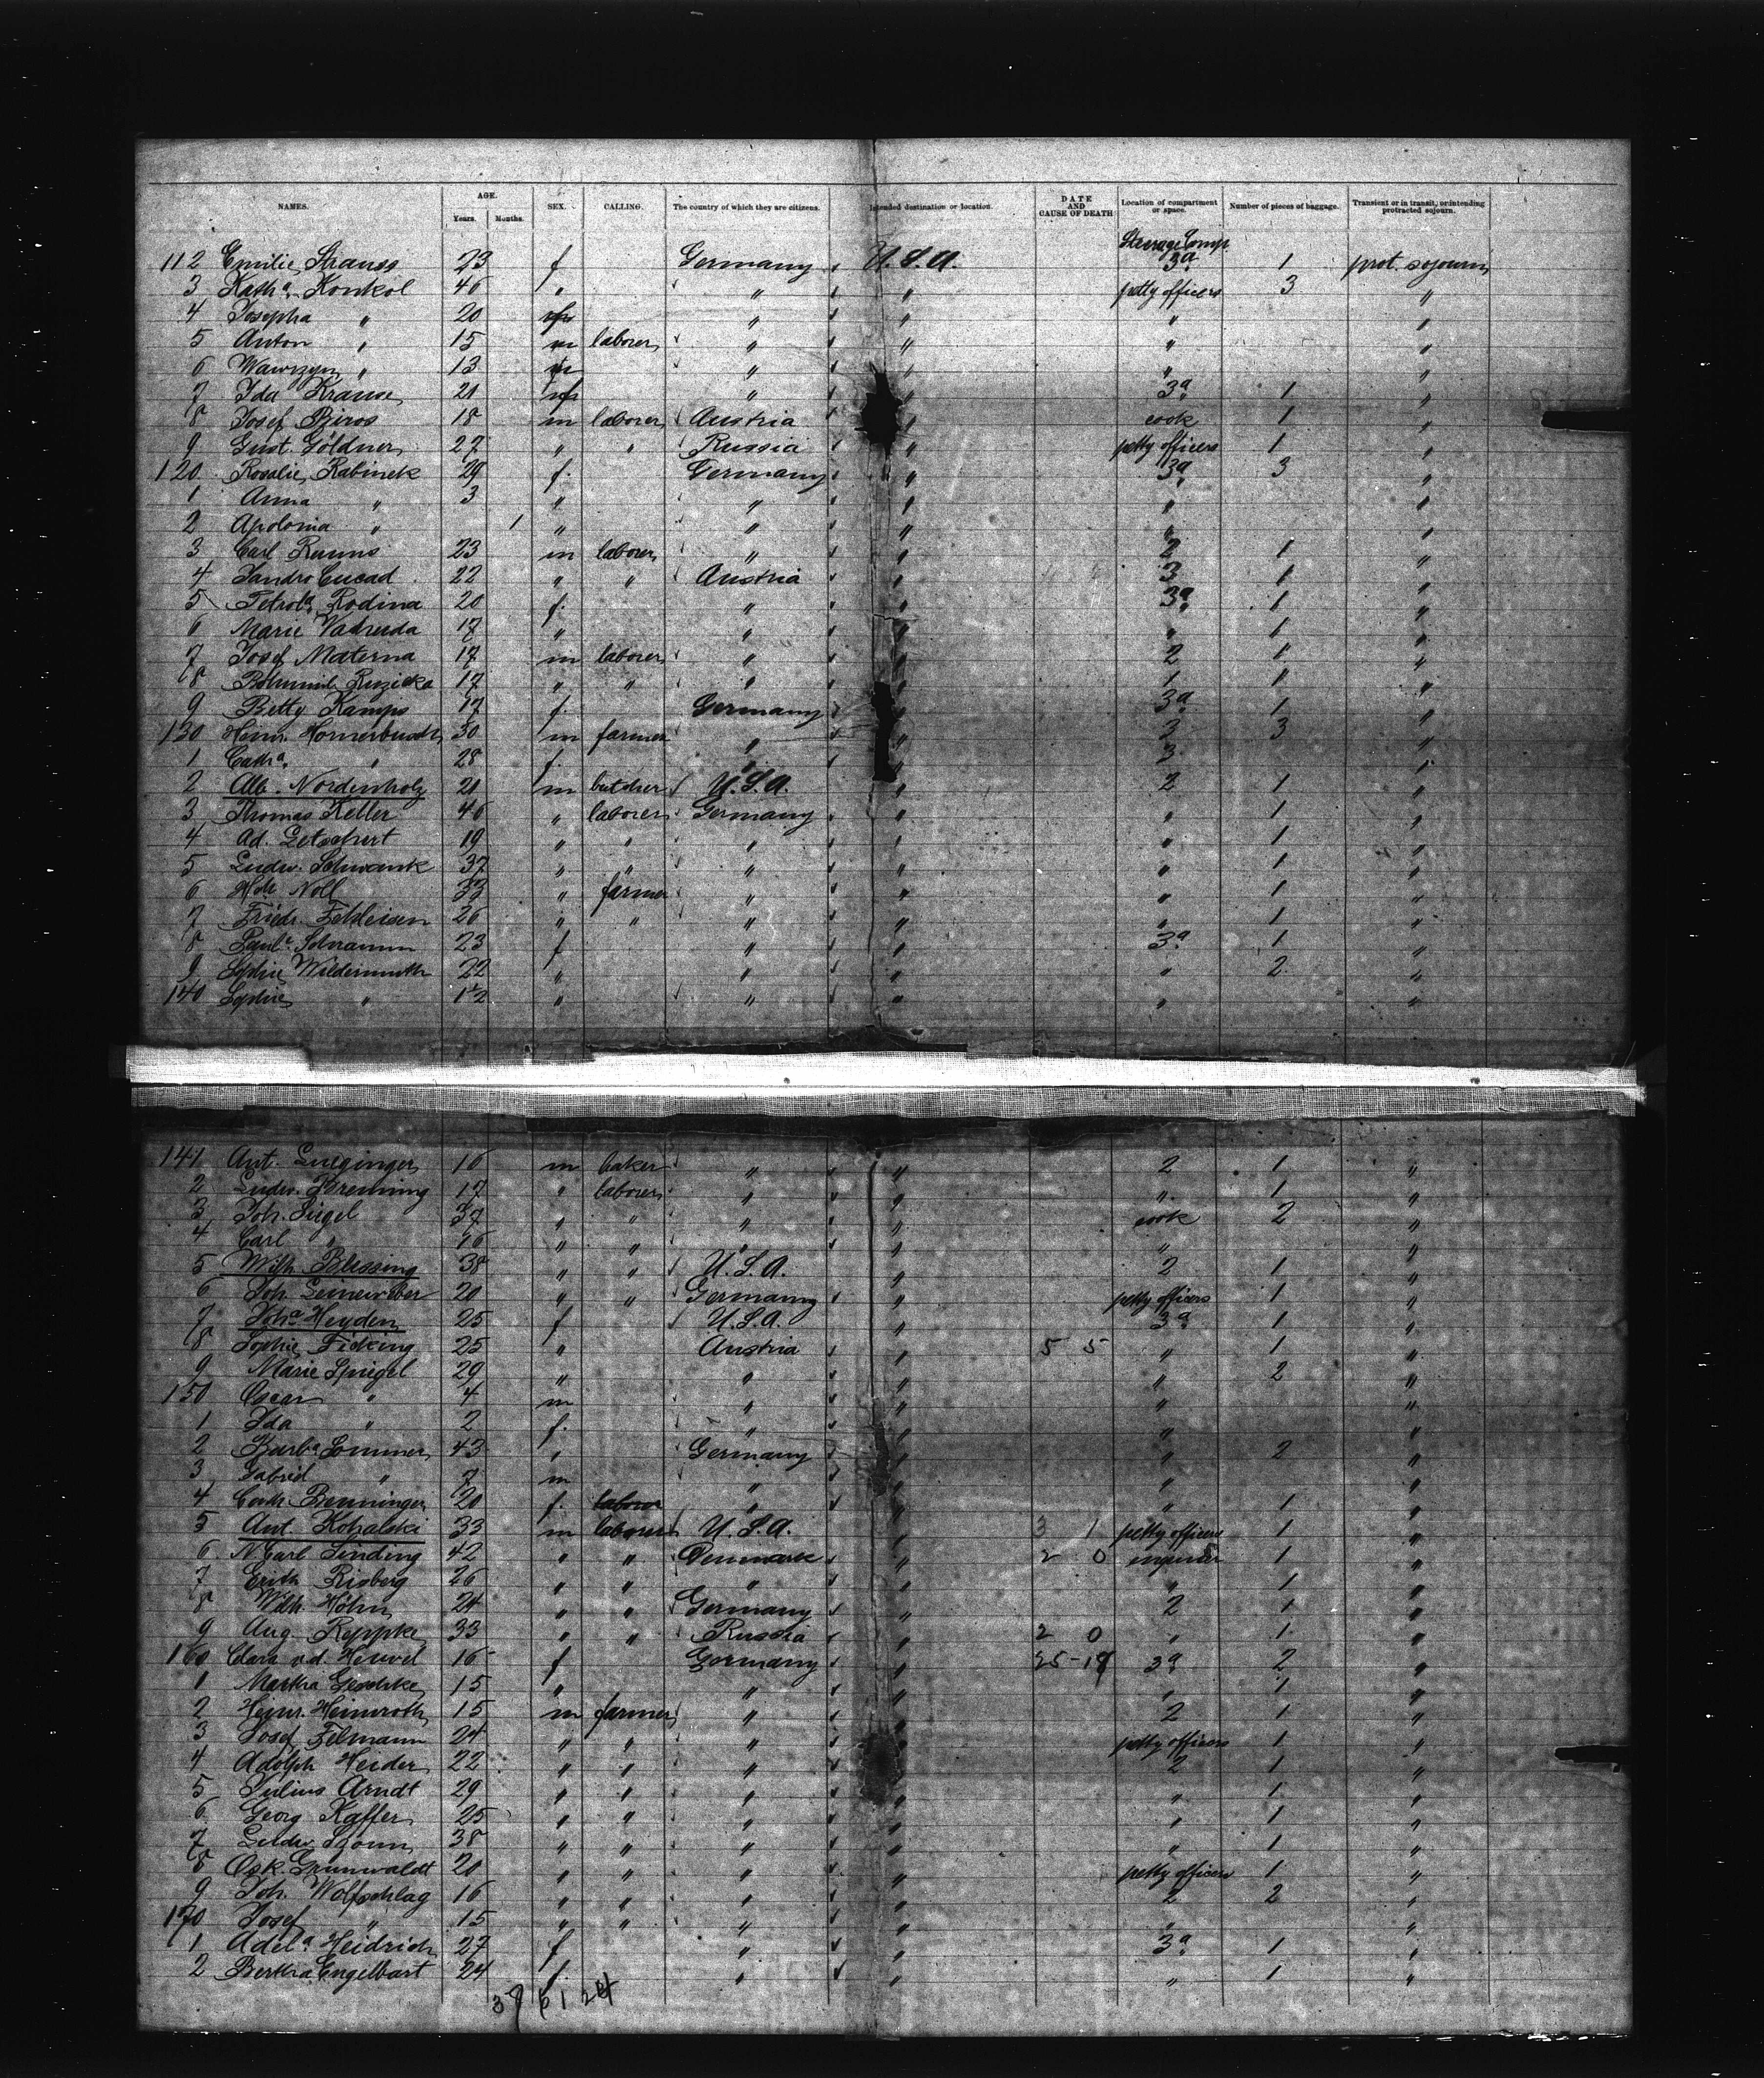 NAMES. AGE. Years. Months. SEX. CALLING. The country of which they are citizens. Intended destination or location. DATE AND CAUSE OF DEATH Location of compartment or space. Number of pieces of baggage. Transient or in transit, or intending protracted sojourn.
Steerage Comp.
112 Emilie Strauss 23 f Germany U.S.A. 3a 1 prot. sojourn
3 Katha. Konkol 46 " " " petty officers 3 "
4 Josepha " 20 " " " "
5 Anton " 15 m laborer " " " "
6 Wawrzyn " 13 m " " " "
7 Ida Krause 21 f " " 3a 1 "
8 Josef Bziros 18 m laborer Austria " cook 1 "
9 Gust. Göldner 27 " " Russia " petty officers 1 "
120 Rosalie Rabinek 29 f. Germany " 3a 3 "
1 Anna " 3 " " " " "
2 Apolonia " 1 " " " " "
3 Carl Ramns 23 m laborer " " 2 1 "
4 Jandro Cucad 22 " " Austria " 3 1 "
5 Petrola Rodina 20 f. " " 3a 1 "
6 Marie Vadruda 17 " " " " 1 "
7 Josef Materna 17 m laborer " " 2 1 "
8 Bohumil Ruzicka 17 " " " " 1 1 "
9 Betty Kamps 17 f. Germany " 3a 1 "
130 Heinr. Hornerbusch 30 m farmer " " 3 3 "
1 Catha. " 28 f. " " 3 "
2 Alb. Nordenholz 21 m butcher U.S.A. " 2 1 "
3 Thomas Keller 46 " laborer Germany " " 1 "
4 Ad. Letschert 19 " " " " " 1 "
5 Ludw. Schwank 37 " " " " " 1 "
6 Hch. Noll 33 " farmer " " " 1 "
7 Friedr. Fehleisen 26 " " " " " 1 "
8 Paule. Schramm 23 f " " 3a 1 "
9 Sophie Wildermuth 22 " " " " 2 "
140 Sophie " 1½ " " " " "
141 Ant. Lueginger 16 m baker " " 2 1 "
2 Ludw. Brenning 17 " laborer " " " 1 "
3 Joh. Siegel 37 " " " " cook 2 "
4 Carl " 16 " " " " " "
5 Wilh. Blessing 38 " " U.S.A. " 2 1 "
6 Joh. Leineweber 20 " " Germany " petty officers 1 "
7 Joha. Heyden 25 f U.S.A. " 3a 1 "
8 Sophie Ficking 25 " Austria " 5 5 " 1 "
9 Marie Spiegel 29 " " " " 2 "
150 Oscar " 4 m " " " "
1 Ida " 2 f. " " " "
2 Barba. Sommer 43 " Germany " " 2 "
3 Gabriel " 7 m " " " "
4 Cath. Benninger 20 f. laborer " " " 1 "
5 Ant. Kohalski 33 m laborer U.S.A. " 3 1 petty officers 1 "
6 N. Carl Linding 42 " " Denmark " 2 0 engineer 1 "
7 Erith Risberg 26 " " " " " 1 "
8 Wilh. Höhn 24 " " Germany " 2 1 "
9 Aug. Reppke 33 " " Russia " 2 0 " 1 "
160 Clara v.d. Heuvel 16 f Germany " 25-19 3a 2 "
1 Martha Gendrke 15 " " " " 1 "
2 Heinr. Heimroth 15 m farmer " " 2 1 "
3 Josef Felmann 24 " " " " petty officers 1 "
4 Adolph Heider 22 " " " " 2 1 "
5 Julius Arndt 29 " " " " " 1 "
6 Georg Kaffer 25 " " " " " 1 "
7 Ludw. 38 " " " " " 1 "
8 Osk. Grunwaldt 20 " " " " petty officers 1 "
9 Joh. Wolfschlag 16 " " " " 2 2 "
170 Josef " 15 " " " " " "
1 Adela Heidrich 27 f " " 3a 1 "
2 Bertha Engelbart 24 f. " " " 1 "